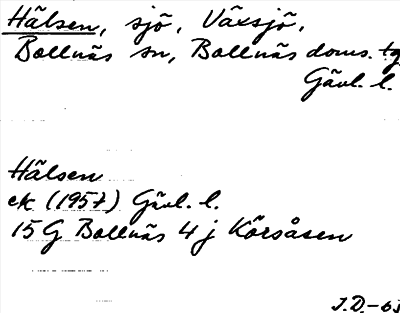 Hälsen, sjö, Växsjö,
Bollnäs sn, Bollnäs doms. tg
Gävl. l.
Hälsen
ek (1957) Gävl. l.
15 G Bollnäs 4 j Körsåsen
J.D.-63